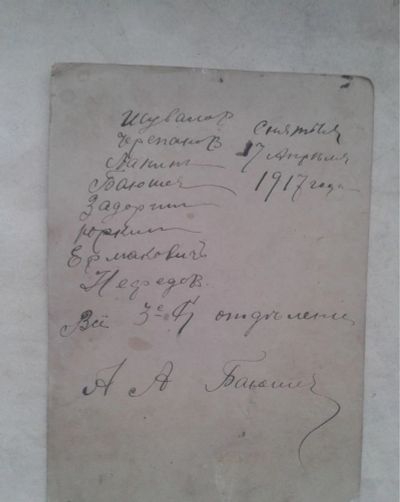 Шуваловъ
Черепановъ
Лапинъ
Баюшевъ
Задоринъ
Юркинъ
Ермаковичъ
Нефедов.
Снятыя
17 Апрѣля
1917 года
Всѣ 3е отдѣленіе
А А Баюшев